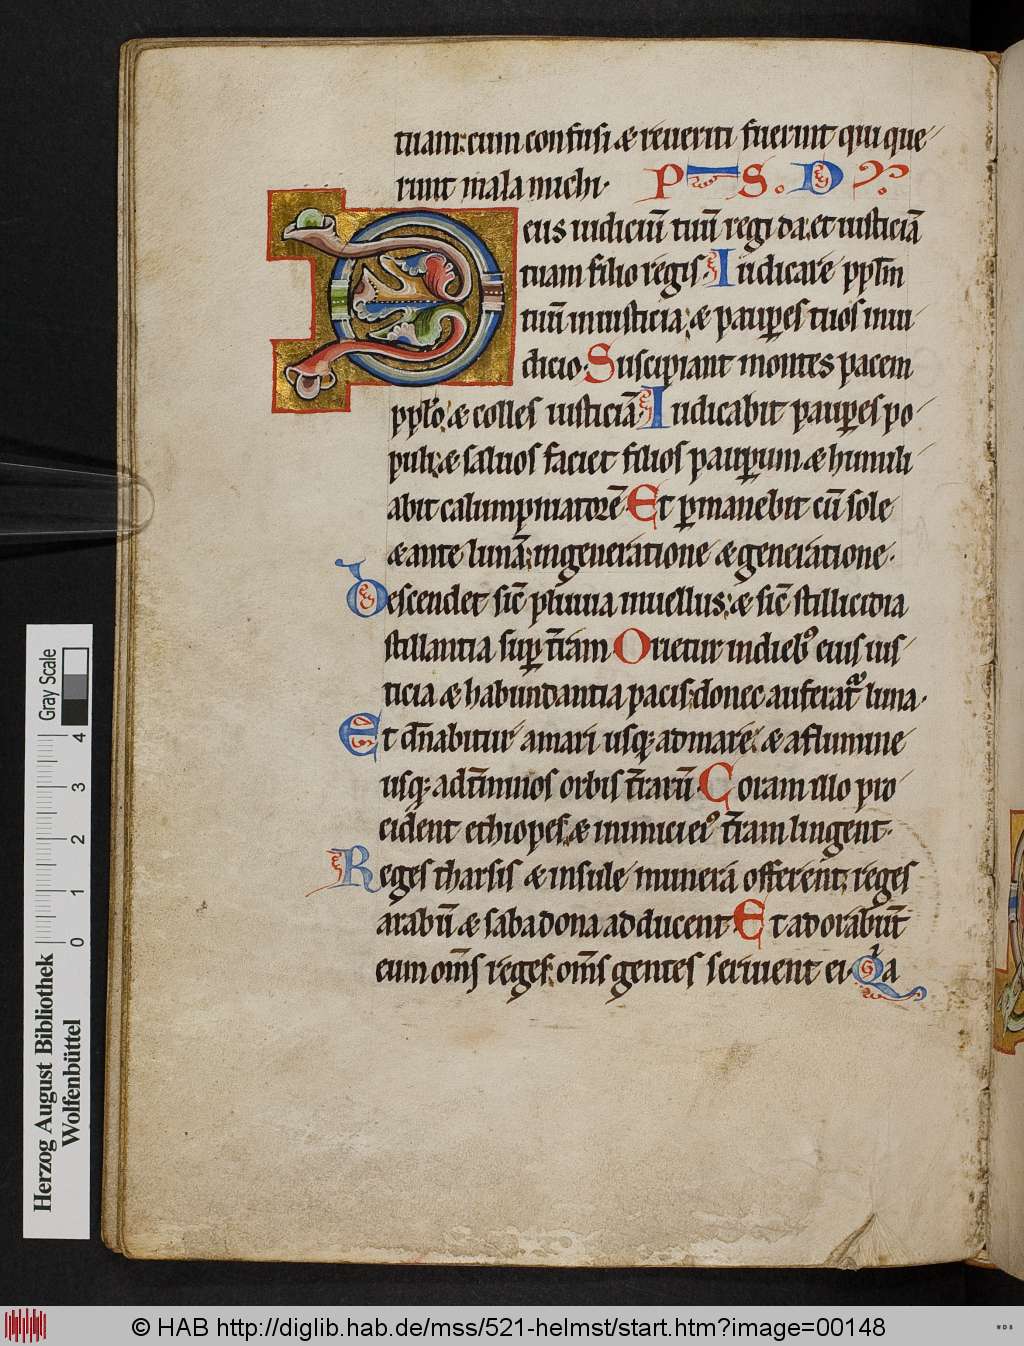 tuam: cum confusi & reveriti fuerint qui que
runt mala michi. PS. D
Deus iudiciū tuū regi da: et iusticiā
tuam filio regis. Iudicare ppl̄m
tuū in iusticia: & paup̲es tuos in iu
dicio. Suscipiant montes pacem
ppl̄o: & colles iusticiā. Iudicabit paup̲es po
puli: & saluos faciet filios paup̲um & humili
abit calumpniatorē. Et p̲manebit cū sole
& ante lunā: in generatione & generatione.
Descendet sic̄ pluuia in uellus: & sic̄ stillicidia
stillantia sup̲ t̄ram. Orietur in dieb⁹ eius ius
ticia & habundantia pacis: donec auferat᷑ luna.
Et dn̄abitur a mari usq; ad mare: & a flumine
usq; ad t̄minos orbis t̄rarū. Coram illo pro
cident ethiopes: & inimici ei⁹ t̄ram lingent.
Reges tharsis & insule munera offerent: reges
arabū & saba dona adducent. Et adorabūt
eum om̄s reges: om̄s gentes seruient ei. Qa
Herzog August Bibliothek
Wolfenbüttel
0 1 2 3 4
Gray Scale
© HAB http://diglib.hab.de/mss/521-helmst/start.htm?image=00148